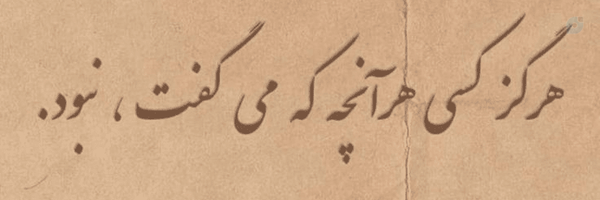 هرگز کسی هرآنچه که می گفت ، نبود.